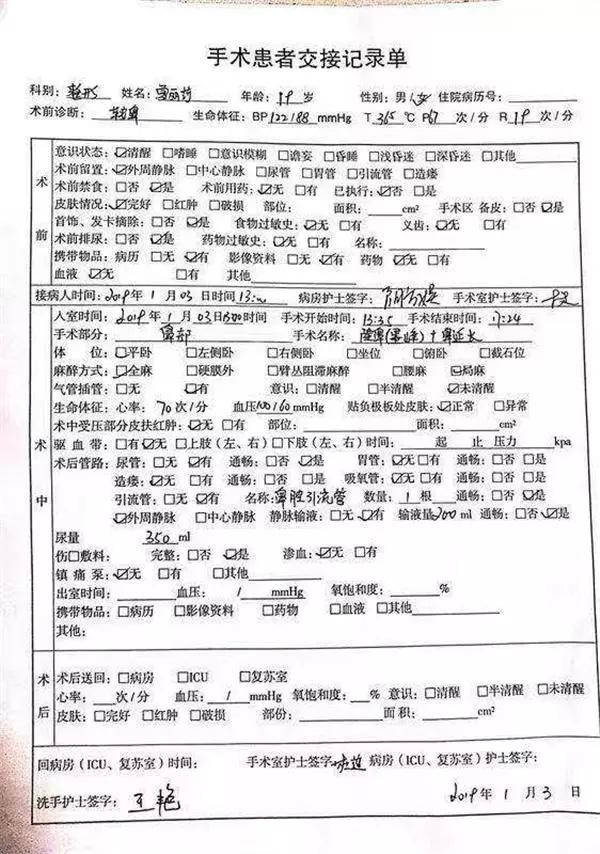 手术患者交接记录单
科别：整形 姓名： 年龄：19 岁 性别：男/女 住院病历号：
术前诊断： 生命体征：BP 122/88 mmHg T 365 ℃ P 67 次/分 R 19 次/分
术前
意识状态：☑清醒 □嗜睡 □意识模糊 □谵妄 □昏睡 □浅昏迷 □深昏迷 □其他
术前留置：☑外周静脉 □中心静脉 □尿管 □胃管 □引流管 □造瘘
术前禁食：□否 ☑是 术前用药：☑无 □有 已执行：□否 ☑是
皮肤情况：☑完好 □红肿 □破损 部位： 面积： cm² 手术区 备皮：□否 ☑是
首饰、发卡摘除：□否 ☑是 食物过敏史：☑无 □有 义齿：☑无 □有
术前排尿：□否 ☑是 药物过敏史：☑无 □有 名称：
携带物品：病历 □无 ☑有 影像资料 □无 ☑有 药物 ☑无 □有
血液 ☑无 □有 其他
接病人时间：2019 年 1 月 03 日时间 13: 病房护士签字： 手术室护士签字：
术中
入室时间：2019 年 1 月 03 日1300时间 手术开始时间：13:35 手术结束时间：17:24
手术部分：鼻部 手术名称：隆鼻( )+鼻延长
体 位：☑平卧 □左侧卧 □右侧卧 □坐位 □俯卧 □截石位
麻醉方式：☑全麻 □硬膜外 □臂丛阻滞麻醉 □腰麻 □局麻
气管插管：□无 ☑有 意识：□清醒 □半清醒 ☑未清醒
生命体征：心率：70 次/分 血压100/60mmHg 贴负极板处皮肤：☑正常 □异常
术中受压部分皮扶红肿：☑无 □有 部位： 面积： cm²
驱 血 带：□有 ☑无 □上肢（左、右）□下肢（左、右）时间： 起 止 压力 kpa
术后管路：尿管：□无 ☑有 通畅：□否 ☑是 胃管：☑无 □有 通畅：□否 □是
造瘘：☑无 □有 通畅：□否 □是 吸氧管：☑无 □有 通畅：□否 □是
引流管：□无 ☑有 名称：鼻腔引流管 数量：1 根 通畅：□否 ☑是
☑外周静脉 □中心静脉 静脉输液：□无 ☑有 输液量：700 ml 通畅：□否 ☑是
尿量 350 ml
伤口敷料： 完整：□否 ☑是 渗血：☑无 □有
镇 痛 泵：☑无 □有 □其他
出室时间： 血压： / mmHg 氧饱和度： %
携带物品：□病历 □影像资料 □药物 □血液 □其他
其他：
术后
术后送回：□病房 □ICU □复苏室
心率： 次/分 血压： / mmHg 氧饱和度： % 意识：□清醒 □半清醒 □未清醒
皮肤：□完好 □红肿 □破损 部份： 面积： cm²
回病房（ICU、复苏室）时间： 手术室护士签字 病房（ICU、复苏室）护士签字：
洗手护士签字：王艳 2019 年 1 月 3 日